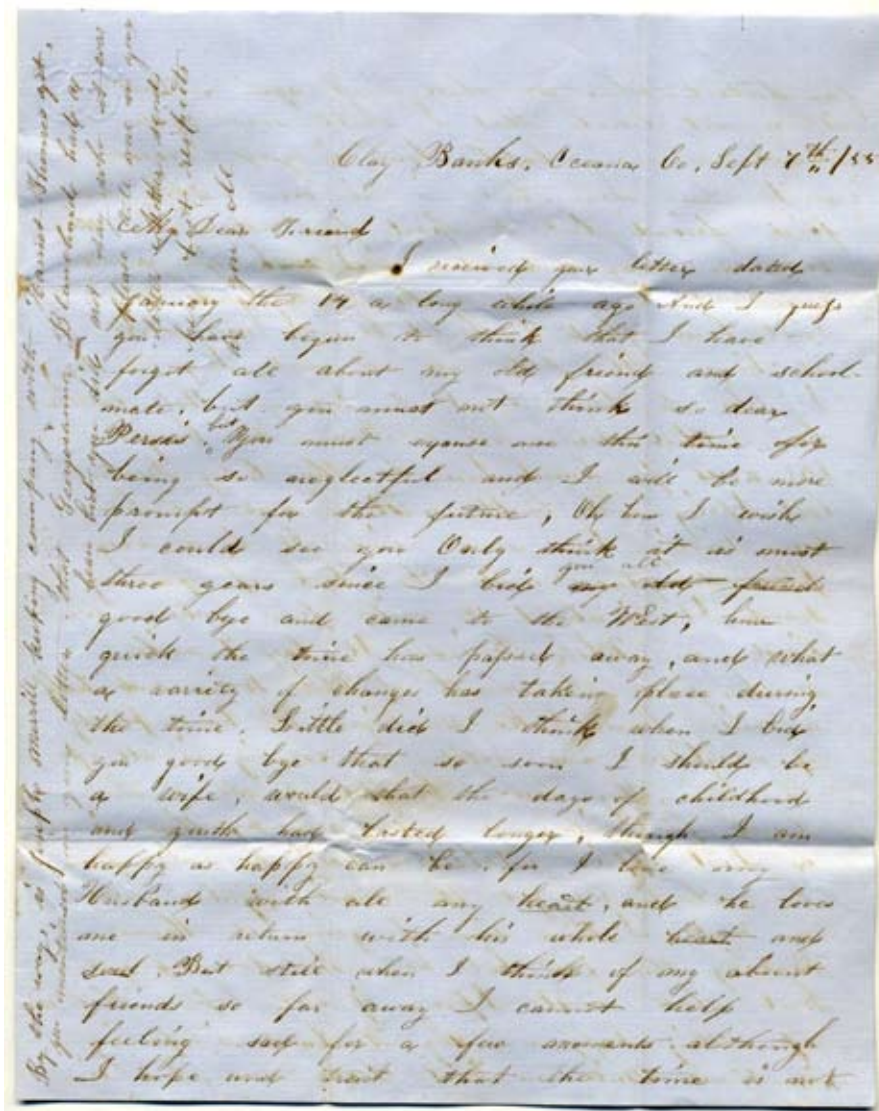 Clay Banks, Oceana Co, Sept 7th/55
My Dear Friend
I received your letter dated
January the 14 a long while ago And I guess
you have begun to think that I have
forgot all about my old friend and school-
mate, but you must not think so dear
Persis, but You must excuse me this time for
being so neglectful and I will be more
prompt for the future, Oh how I wish
I could see you Only think it is most
three years since I bid you all my old friends
good bye and came to the West, how
quick the time has passed away, and what
a varrity of changes has taking place during
the time. Little did I think when I bid
you good bye that so soon I should be
a wife, would that the days of childhood
and youth had lasted longer, though I am
happy as happy can be, for I love my
Husband with all my heart, and he loves
me in return with his whole heart and
soul. But still when I think of my absent
friends so far away I cannot help
feeling sad for a few moments although
I hope and trust that the time is not
By the way, is Merrill keeping company with Harriet Thomas yet,
you mentioned in your letter that Georgeanna Blanchard had a
beau but you did not say who it was
please tell me in your
Mother sends
best respects
to you all